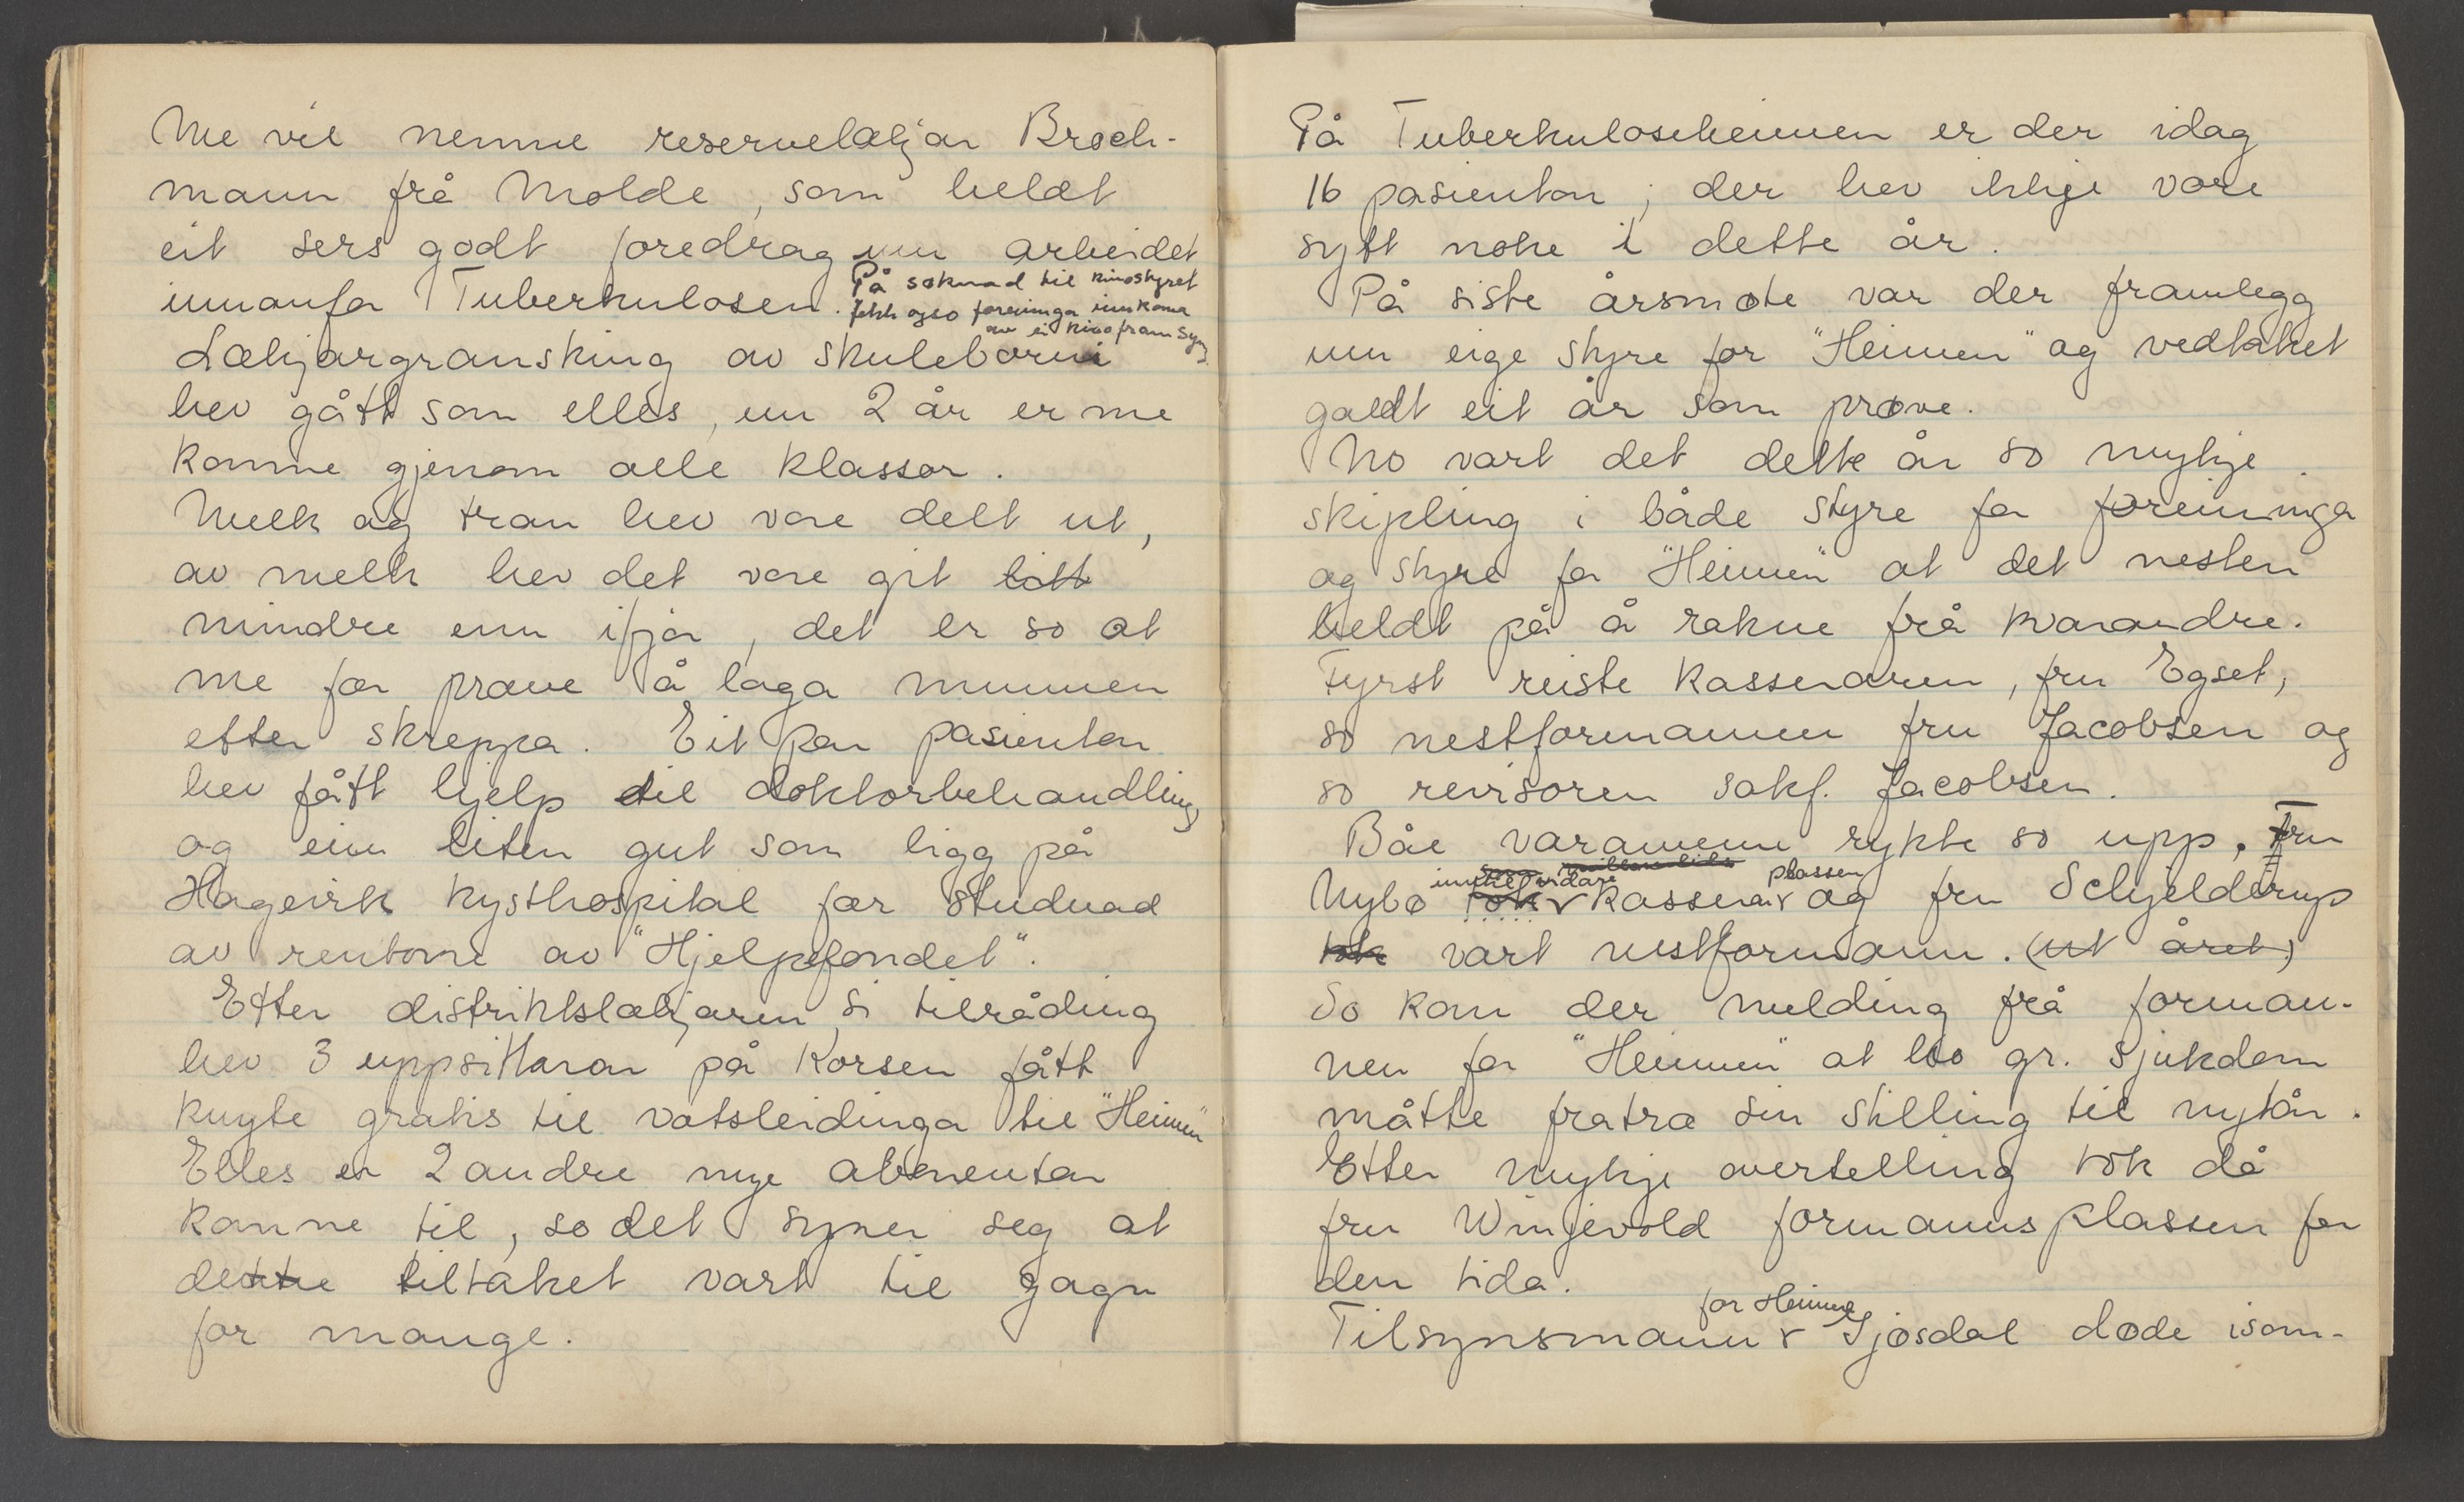 Me vil nemne reservelækjar Broch-
mann frå Molde, som heldt
eit sers godt foredrag um arbeidet
innanfor Tuberkulosen. På søknad til kinostyret
fekk ogso foreininga innkoma
av ei kinoframsyn.
Lækjargransking av skuleborni
hev gått som elles, um 2 år er me
komne gjenom alle klassar.
Melk og tran hev vore delt ut,
av melk hev det vore git litt
mindre enn ifjor, det er so at
me fær prøve å laga munnen
etter skreppa. Eit par pasientar
hev fått hjelp til doktorbehandling
og ein liten gut som ligg på
Hagevik kysthospital fær studnad
av rentorne av "Hjelpefondet".
Etter distriktslækjaren si tilråding
hev 3 uppsittarar på Korsen fått
knyte gratis til vatsleidinga til "Heimen"
Elles er 2 andre nye abonentar
komne til, so det syner seg at
dette tiltaket vart til gagn
for mange.
På Tuberkuloseheimen er der idag
16 pasientar; der hev ikkje vore
sytt noke i dette år.
På siste årsmøte var der framlegg
um eige styre for "Heimen" og vedtaket
galdt eit år som prøve.
No vart det dette år so mykje
skipling i både styre for foreininga
og styre for "Heimen" at det nesten
heldt på å rakne frå kvarandre.
Fyrst reiste kasseraren, fru Egset,
so nestformannen fru Jacobsen og
so revisoren sakf. Jacobsen.
Båe varamenn rykte so upp. Fru
som millombils
inntil vidare plassen
Nybø tok kasserar og fru Schjelderup
tok vart nestformann. (ut året)
So kom der melding frå forman-
nen for "Heimen" at ho gr. sjukdom
måtte fratræ sin stilling til nytår.
Etter mykje overtelling tok då
fru Wingevold formannsplassen for
den tida.
for Heimen
Tilsynsmann Gjøsdal døde isom-